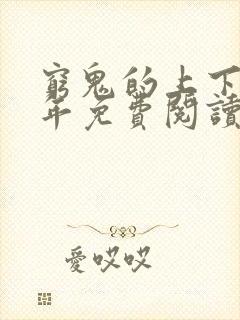 窮鬼的上下
年免費閱讀
愛哎哎